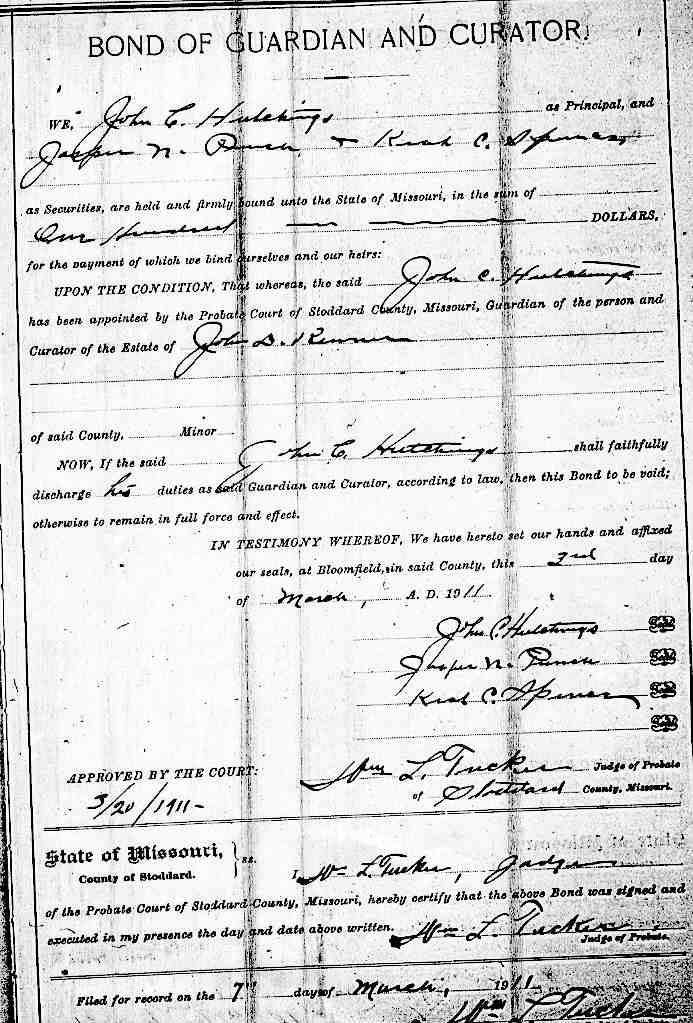 BOND OF GUARDIAN AND CURATOR.
WE, John C. Hutchings as Principal, and
Jasper N. Punch +  C. Spence,
as Securities, are held and firmly bound unto the State of Missouri, in the sum of
One Hundred DOLLARS,
for the payment of which we bind ourselves and our heirs:
UPON THE CONDITION, That whereas, the said John C. Hutchings
has been appointed by the Probate Court of Stoddard County, Missouri, Guardian of the person and
Curator of the Estate of John D.
of said County, Minor
NOW, If the said John C. Hutchings shall faithfully
discharge his duties as said Guardian and Curator, according to law, then this Bond to be void;
otherwise to remain in full force and effect.
IN TESTIMONY WHEREOF, We have hereto set our hands and affixed
our seals, at Bloomfield, in said County, this day
of March, A. D. 1911
John C. Hutchings Seal
Jasper N. Punch Seal
C. Spence Seal
Seal
APPROVED BY THE COURT: Wm L. Tucker Judge of Probate
3/20/1911- of Stoddard County, Missouri.
State of Missouri, } ss.
County of Stoddard. I Wm L Tucker, Judge
of the Probate Court of Stoddard County, Missouri, hereby certify that the above Bond was signed and
executed in my presence the day and date above written. Wm L. Tucker
Judge of Probate.
Filed for record on the 7" day of March, 1911
Wm L Tucker